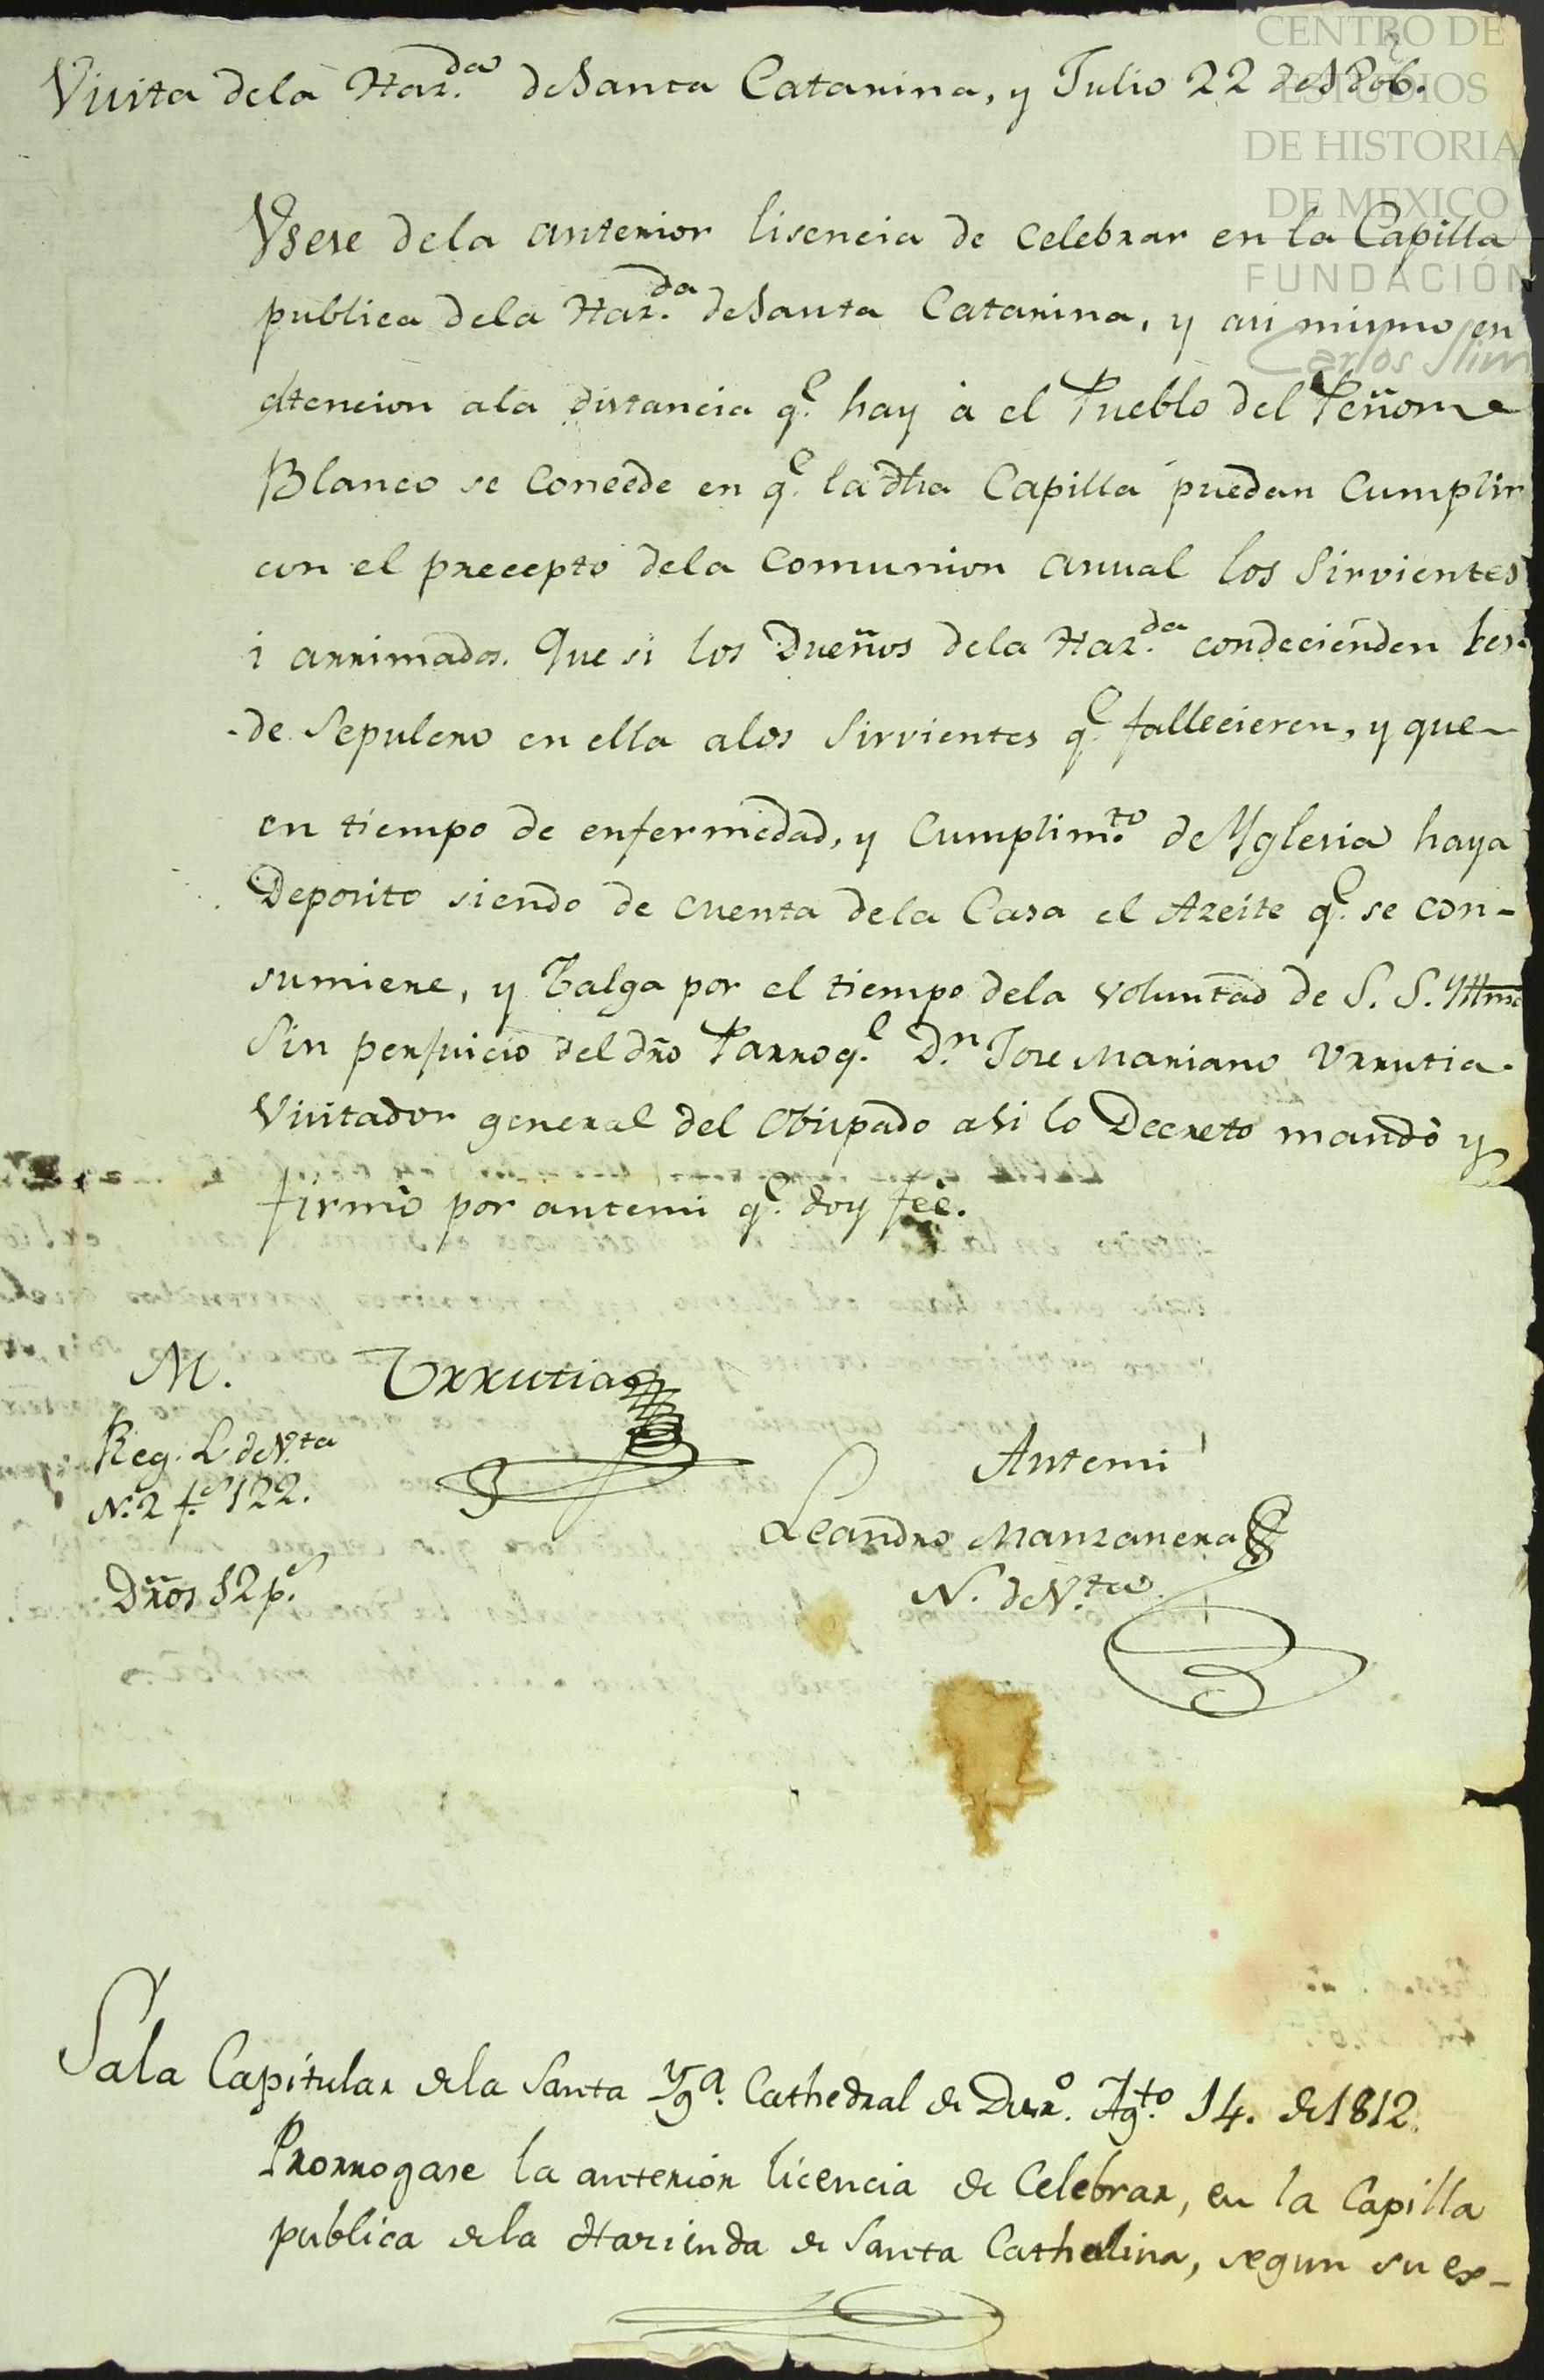 CENTRO DE
ESTUDIOS
DE HISTORIA
DE MEXICO
FUNDACIÓN
Carlos Slim
Visita dela Haz.da de Santa Catarina, y Julio 22 de 1806.
Vsese dela anterior lisencia de celebrar en la Capilla
publica dela Haz.da de Santa Catarina, y asi mismo en
atencion ala distancia q.e hay à el Pueblo del Peñon
Blanco se concede en q.e la dha Capilla puedan cumplir
con el precepto dela comunion anual los Sirvientes
i arrimados. Que si los Dueños dela Haz.da condecienden
de Sepulcro en ella alos Sirvientes q.e fallecieren, y que
en tiempo de enfermedad, y cumplim.to de Yglesia haya
Deposito siendo de cuenta dela Casa el Azeite q.e se con-
sumiere, y Valga por el tiempo dela voluntad de S. S. Yllma
Sin perjuicio del dro Parroq.l D.n Jose Mariano Urrutia
Visitador general del Obispado asi lo Decretó mandó y
firmó por antemi q.e doy feé.
M. Urrutia
Reg. L. de V.ta
N.2 f.s 122.
Dros 12 p.s
Antemi
Leandro Manzanera
N. de V.ta
Sala Capitular de la Santa Yg.a Cathedral de Dur.o Ag.to 14. de 1812.
Prorrogase la anterior licencia de Celebrar, en la Capilla
publica de la Hazienda de Santa Cathalina, segun su ex-